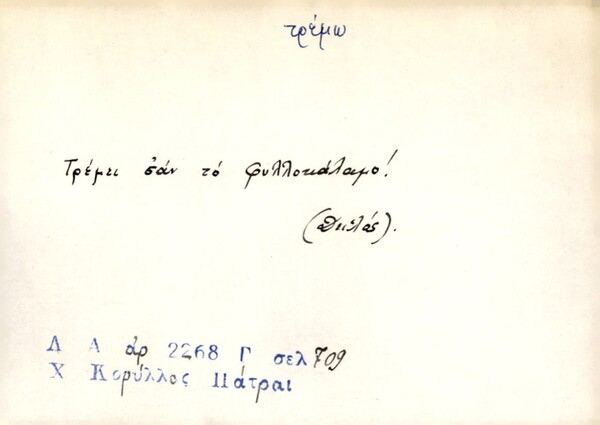 τρέμω
Τρέμει σάν τό φυλλοκάλαμο!
(δειλός).
Λ Α ἀρ 2268 Γ σελ 709
Χ Κορύλλος Πάτραι